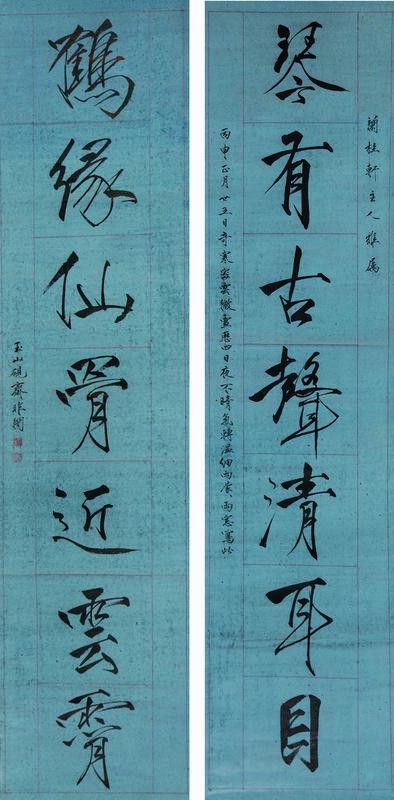 蘭桂軒主人雅屬
琴有古聲清耳目
丙申正月廿五日奇寒雲微歷四日夜不晴氣轉溫細雨窓寫此
鶴緣仙骨近雲霄
玉山硯齋非闇